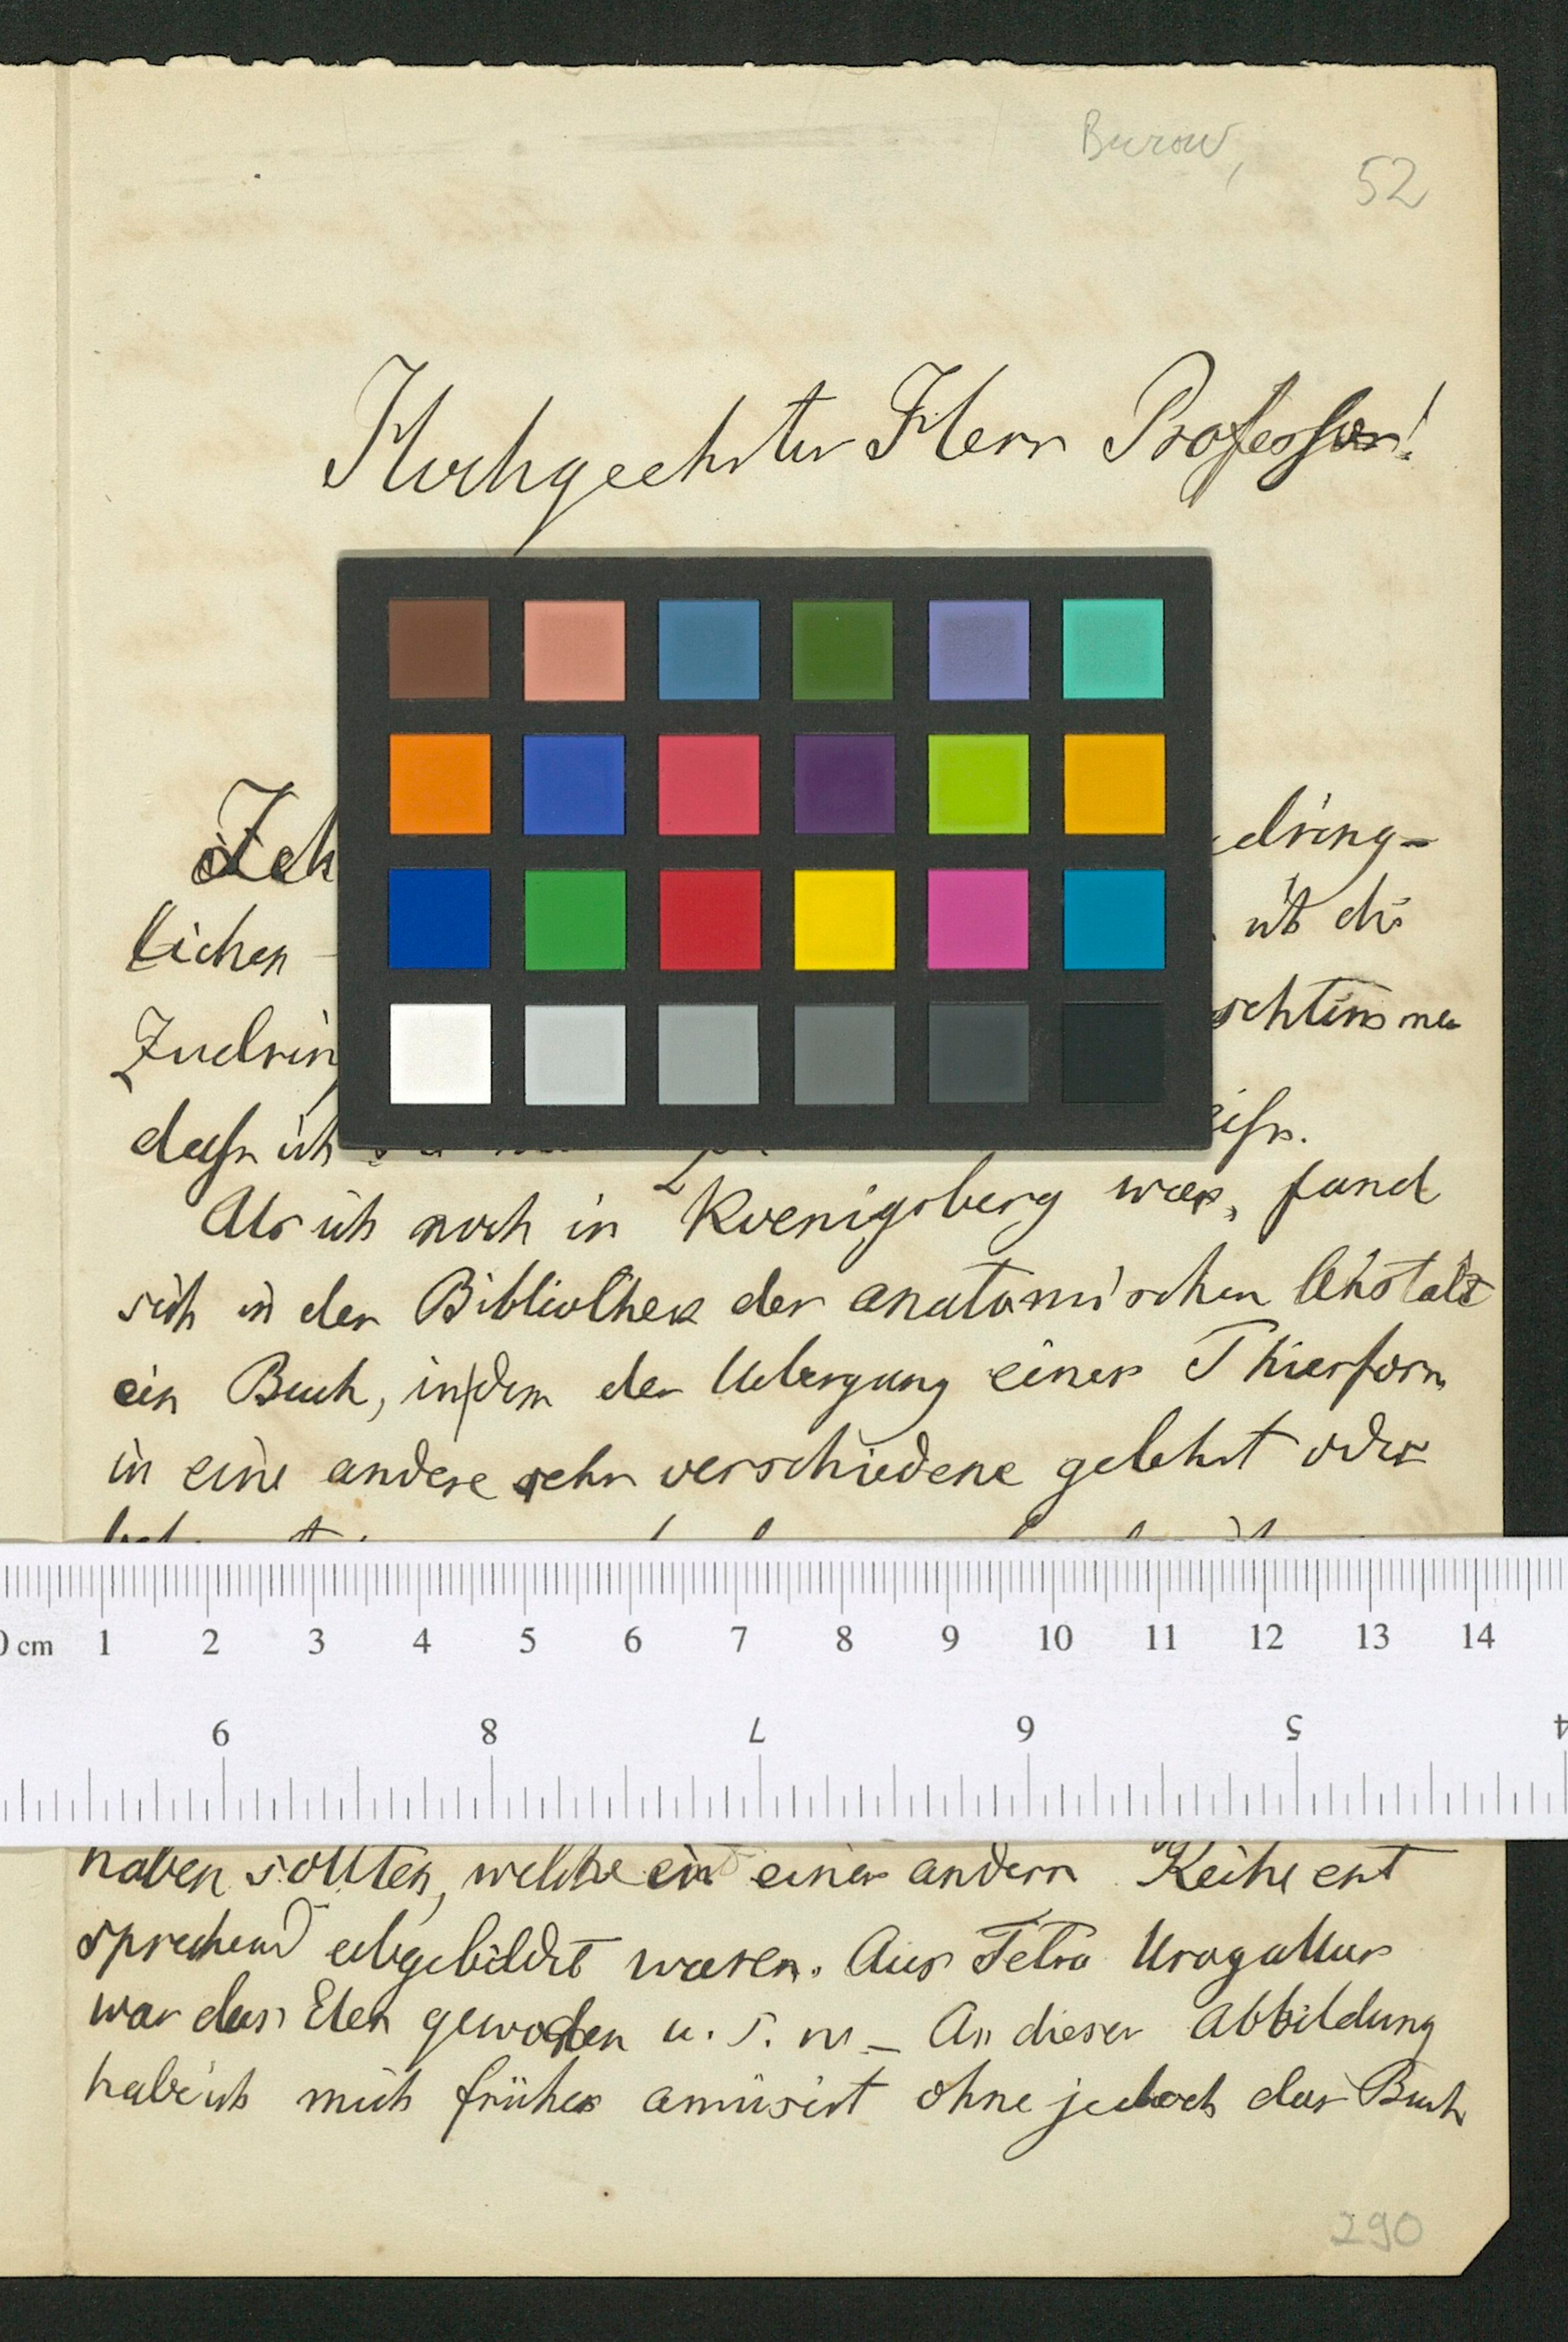 Burow,
52
Hochgeehrter Herr Professor!
Ich
dring-
lichen
ich die
Zudrin
dass ich
Als ich noch in Koenigsberg war, fand
sich in der Bibliothek der anatomischen Anstalt
ein Buch, in dem der Uebergang einer Thierform
in eine andere sehr verschiedene gelehrt oder
0 cm 1 2 3 4 5 6 7 8 9 10 11 12 13 14
9 8 7 6 5 4
haben sollten, welche einer andern Reihe ent
sprechend abgebildet waren. Aus Tetrao Urogallus
war das Elen geworden u. s. w – An dieser Abbildung
habe ich mich früher amüsirt ohne jedoch das Buch
290